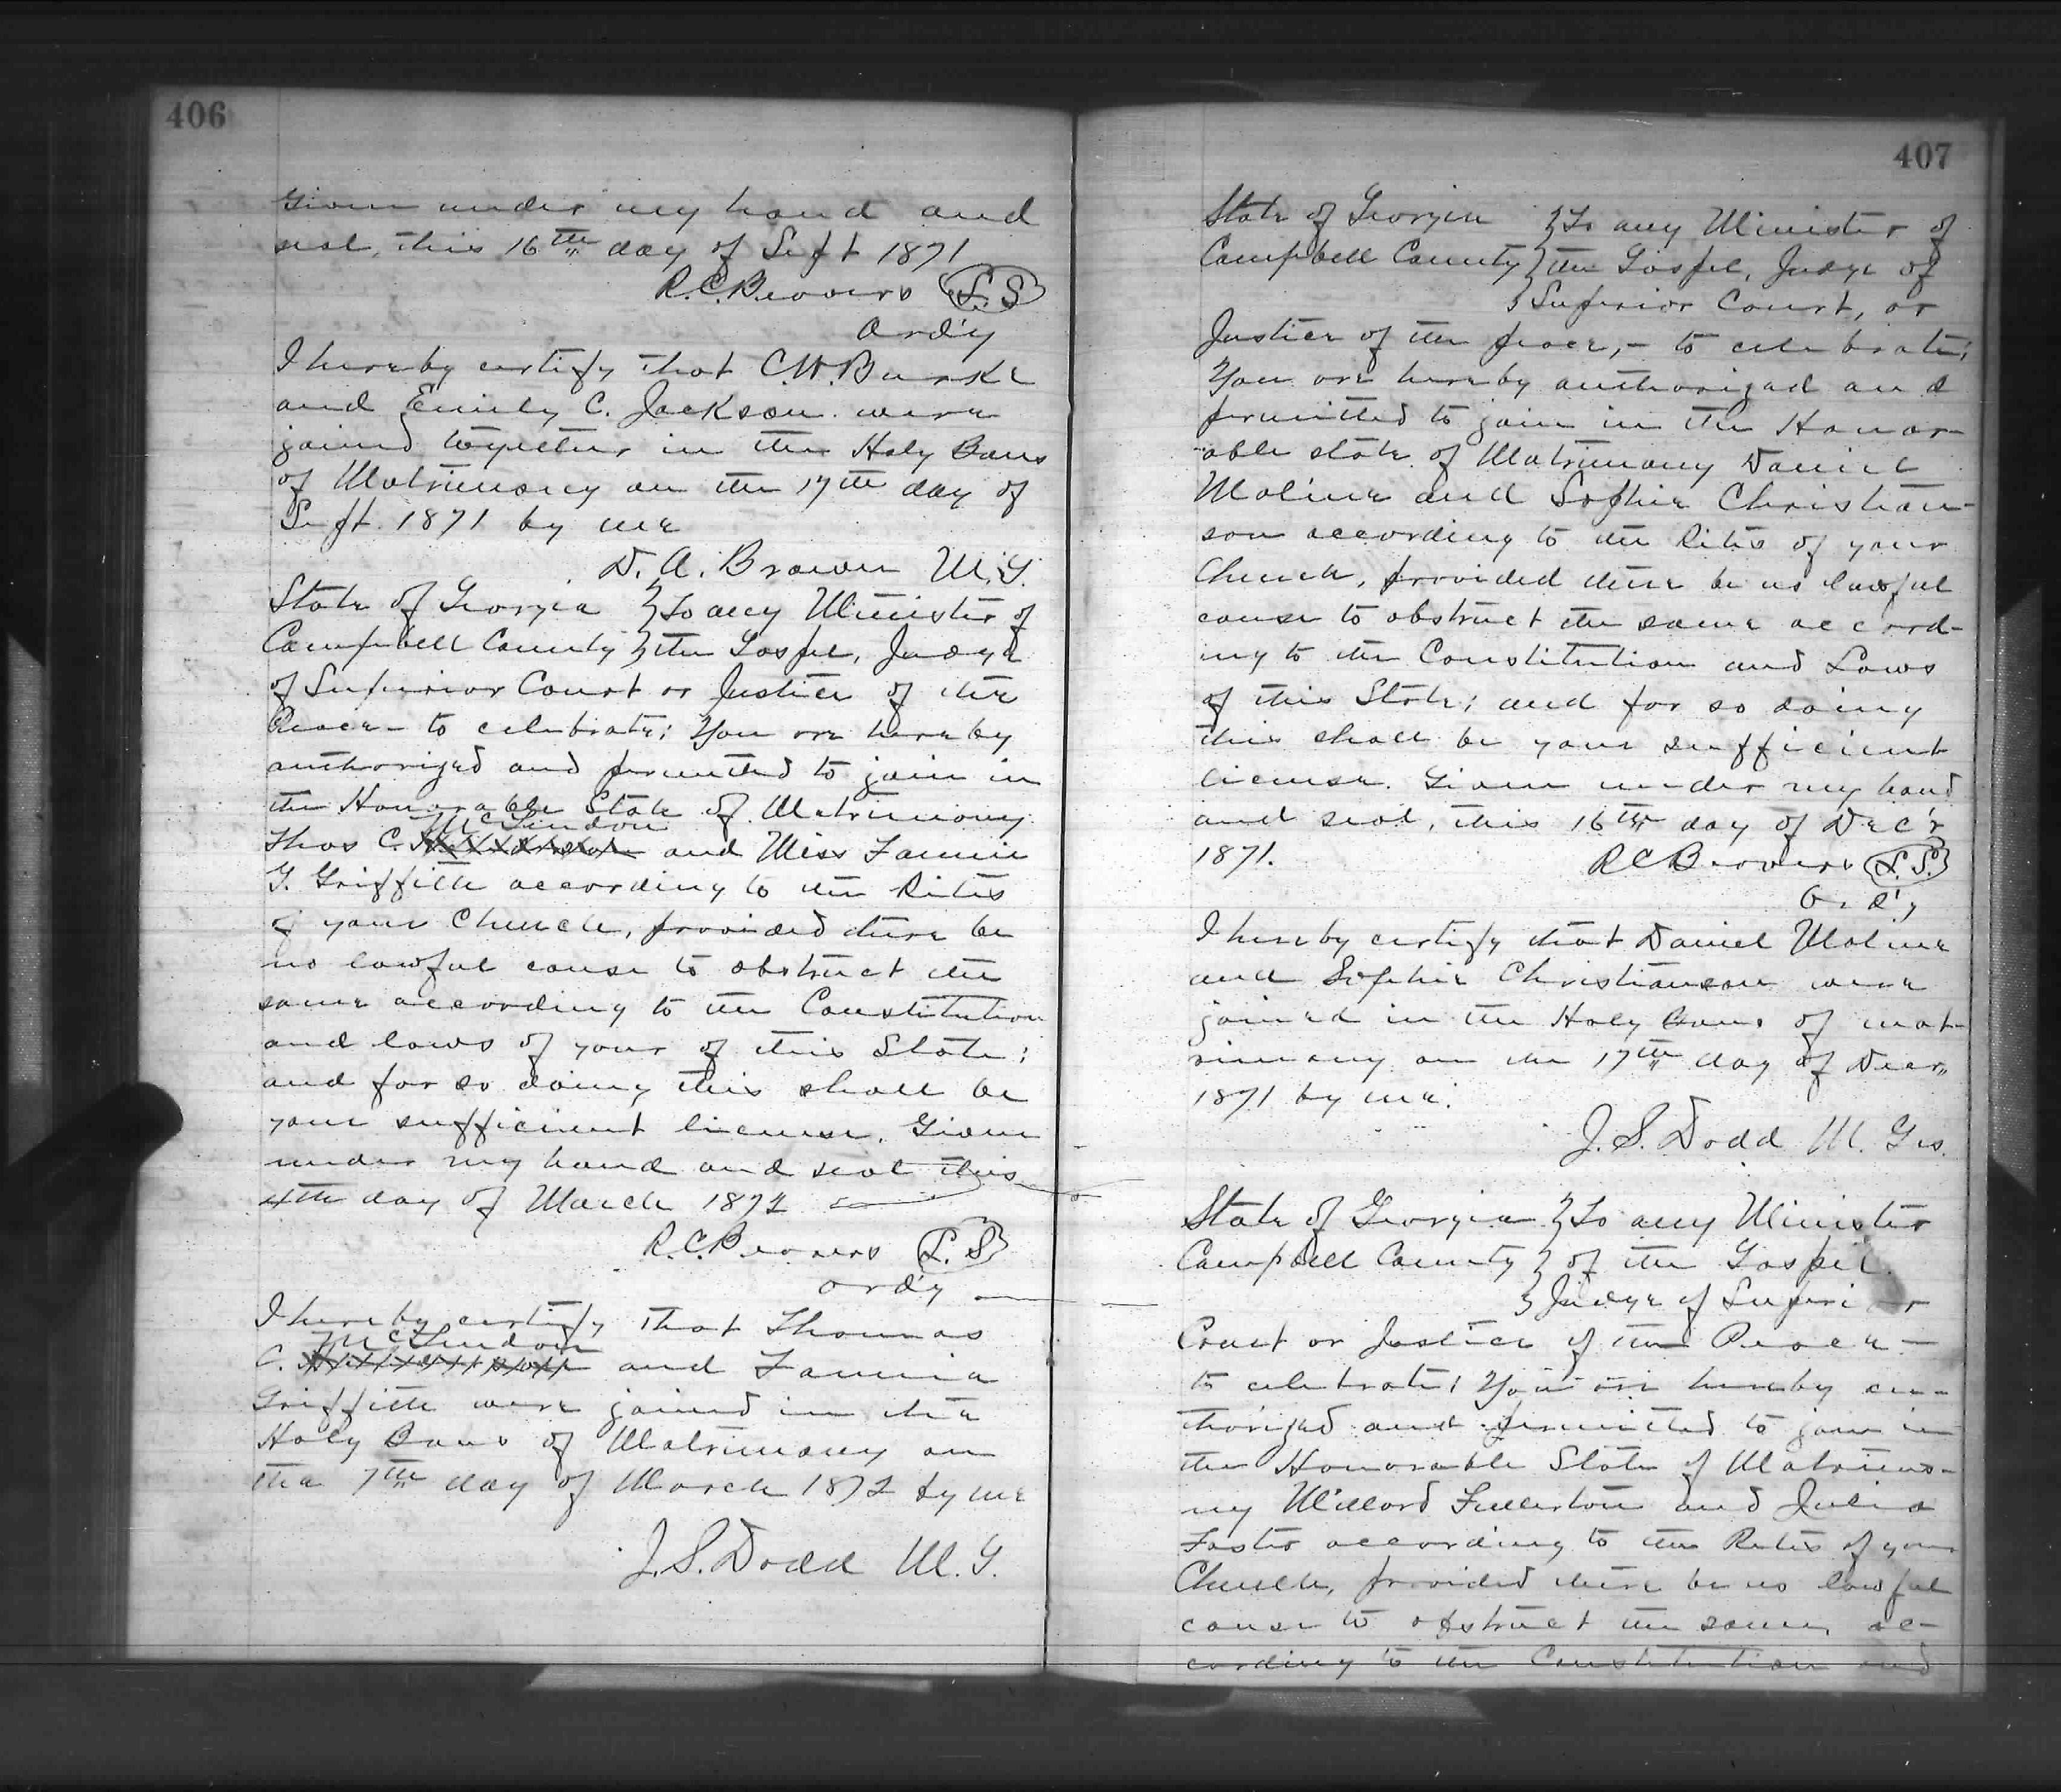 406
Given under my hand and
seal, this 16th day of Sept 1871
R. C. Beavers (L.S)
Ord'y
I hereby certify that C. W. Burke
and Emily C. Jackson were
joined together in the Holy Bans
of Matrimony on the 17th day of
Sept. 1871 by me
D. A. Brown M.G.
State of Georgia } To any Minister of
Campbell County } the Gospel, Judge
of Superior Court or Justice of the
Peace - to celebrate: You are hereby
authorized and permitted to join in
the Honorable State of Matrimony
McLendon
Thos C. and Miss Fannie
G. Griffith according to the Rites
of your Church, provided there be
no lawful cause to obstruct the
same according to the Constitution
and laws of your of this State;
and for so doing this shall be
your sufficient license. Given
under my hand and seal this
4th day of March 1872
R. C. Beavers (L.S)
ord'y
I hereby certify that Thomas
McLendon
C. and Fannie
Griffith were joined in the
Holy Bans of Matrimony on
the 7th day of March 1872 by me
J. S. Dodd M.G.
407
State of Georgia } To any Minister of
Campbell County } the Gospel, Judge of
} Superior Court, or
Justice of the peace, - to celebrate;
You are hereby authorized and
permitted to join in the Honor-
able state of Matrimony Daniel
Maline and Sophie Christian-
son according to the Rites of your
Church, provided there be no lawful
cause to obstruct the same accord-
ing to the Constitution and Laws
of this State; and for so doing
this shall be your sufficient
license. Given under my hand
and seal, this 16th day of Dec'r
1871. R C Beavers (L.S.)
Ord'y
I hereby certify that Daniel Maline
and Sophie Christianson were
joined in the Holy Bans of mat-
rimony on the 17th day of Decr,,
1871 by me.
J. S. Dodd M. Gos.
State of Georgia } To any Minister
Campbell County } of the Gospel.
} Judge of Superior
Court or Justice of the Peace -
to celebrate; You are hereby au-
thorized and permitted to join in
the Honorable State of Matrimo-
ny Millard Fullerton and Julia
Foster according to the Rites of your
Church, provided there be no lawful
cause to obstruct the same, ac-
cording to the Constitution and